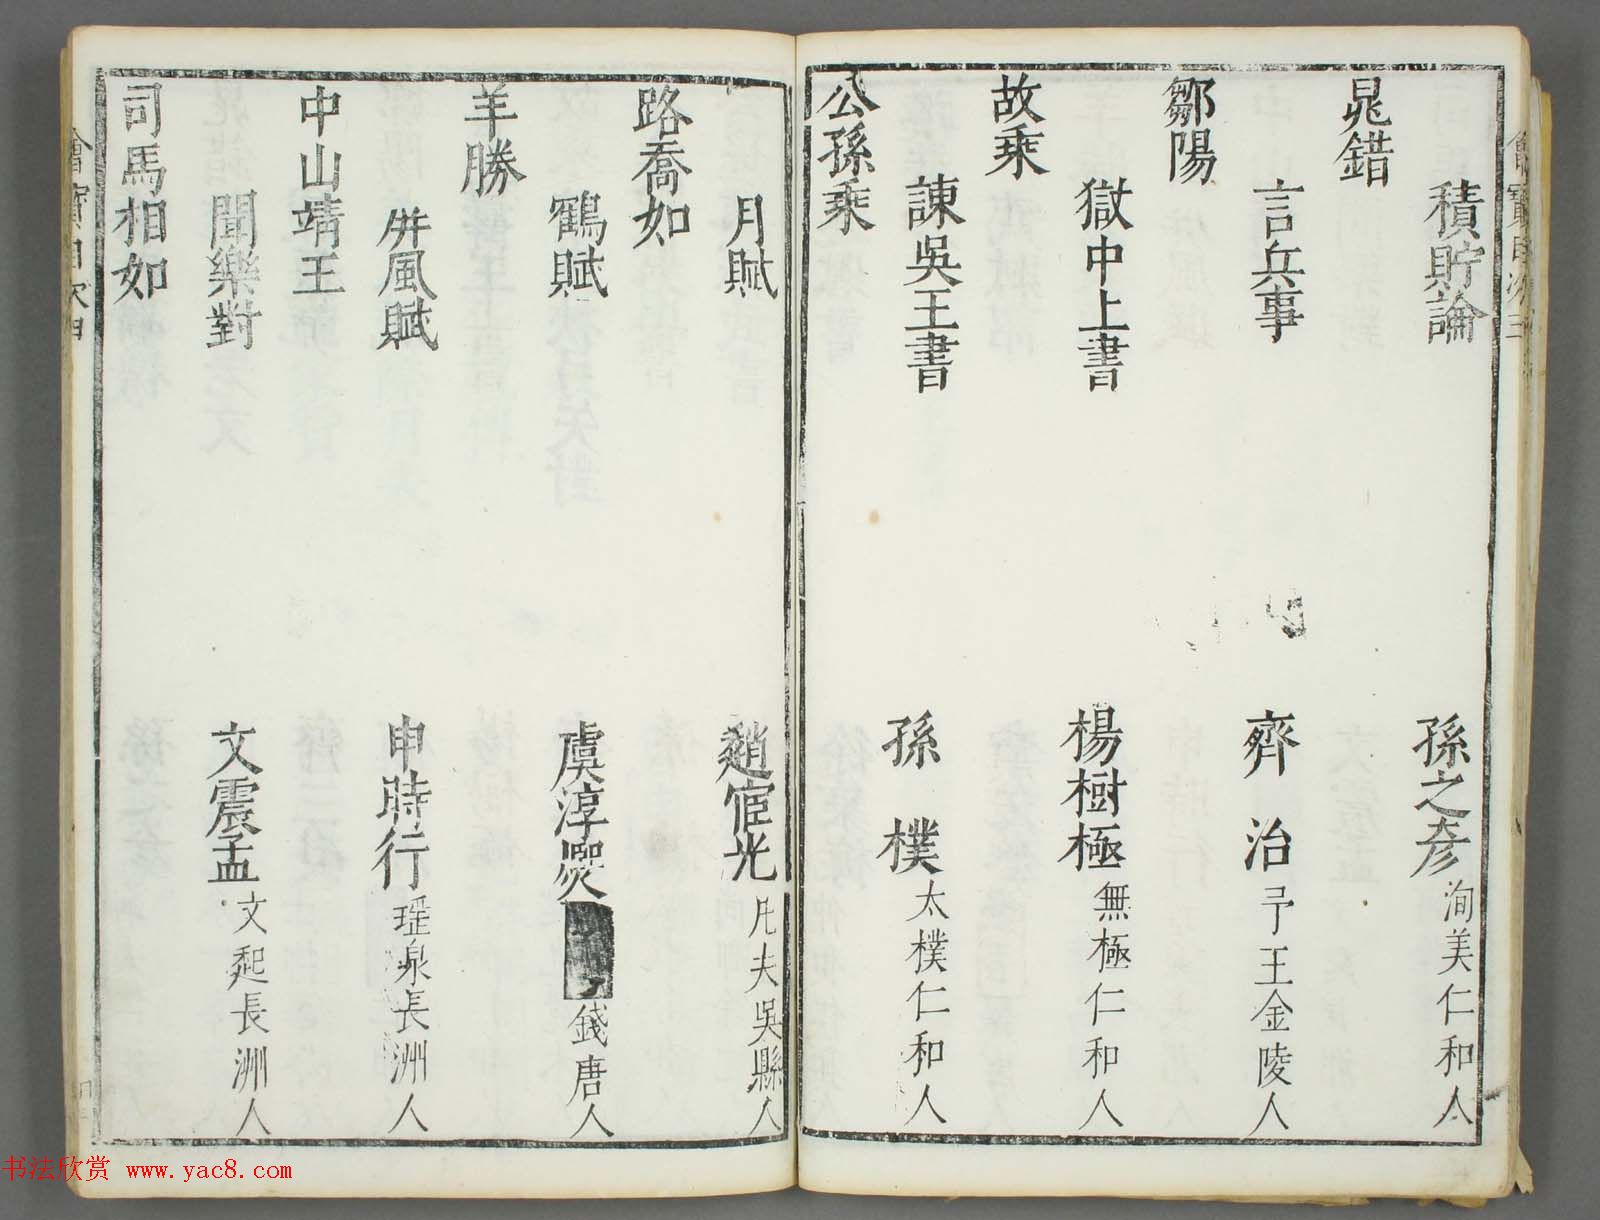 積貯論 孫之彥 洵美仁和人
晁錯
言兵事 齊治 予王金陵人
鄒陽
獄中上書 楊樹極 無極仁和人
故乘
諫吳王書 孫樸 太樸仁和人
公孫乘
月賦 趙宧光 凡夫吳縣人
路喬如
鶴賦 虞淳熙 錢唐人
羊勝
屏風賦 申時行 瑶泉長洲人
中山靖王
聞樂對 文震孟 文起長洲人
司馬相如
书法欣赏 www.yac8.com